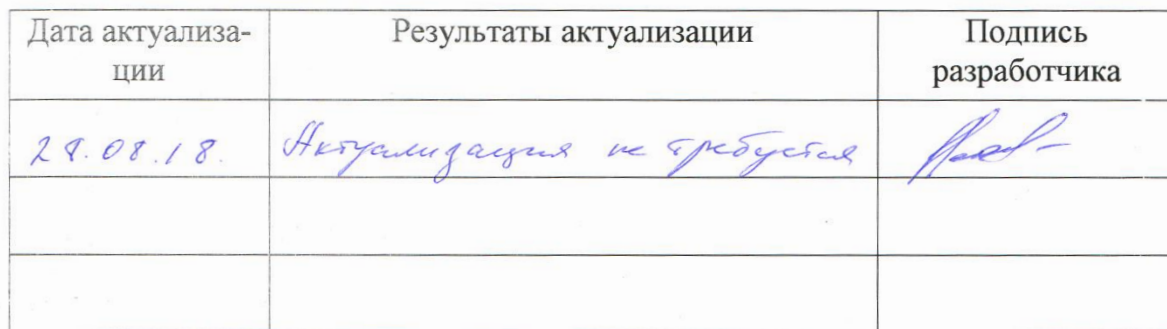 Дата актуализа-
ции
Результаты актуализации
Подпись
разработчика
28.08.18.
Актуализация не требуется